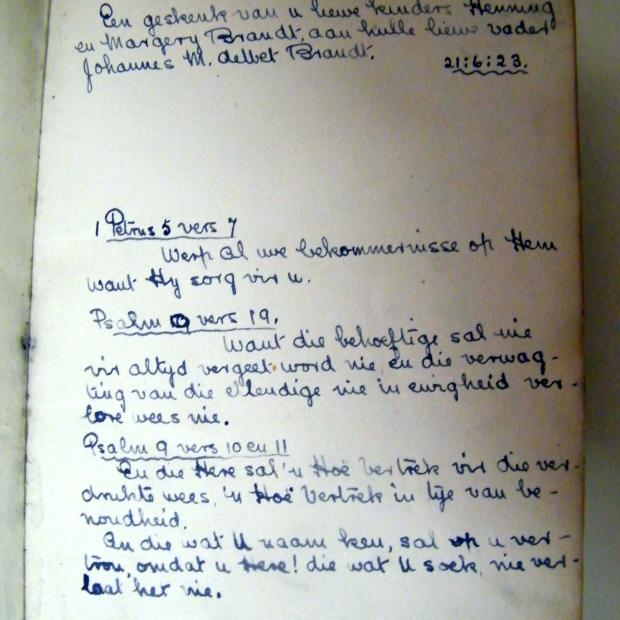 Een geskenk van u liewe kinders Henning
en Margery Brandt, aan hulle liewe vader
Johannes M. deWet Brandt.
21:6:23.
1 Petrus 5 vers 7
Werp al uwe bekommernisse op Hem
want Hy sorg vir u.
Psalm 9 vers 19.
Want die behoeftige sal nie
vir altyd vergeet word nie, en die verwag-
ting van die ellendige nie in ewigheid ver-
lore wees nie.
Psalm 9 vers 10 en 11
En die Here sal 'n Hoë Vertrek vir die ver-
drukte wees, 'n Hoë Vertrek in tye van be-
noudheid.
En die wat U naam ken, sal op u ver-
trou, omdat u Here! die wat U soek, nie ver-
laat het nie.